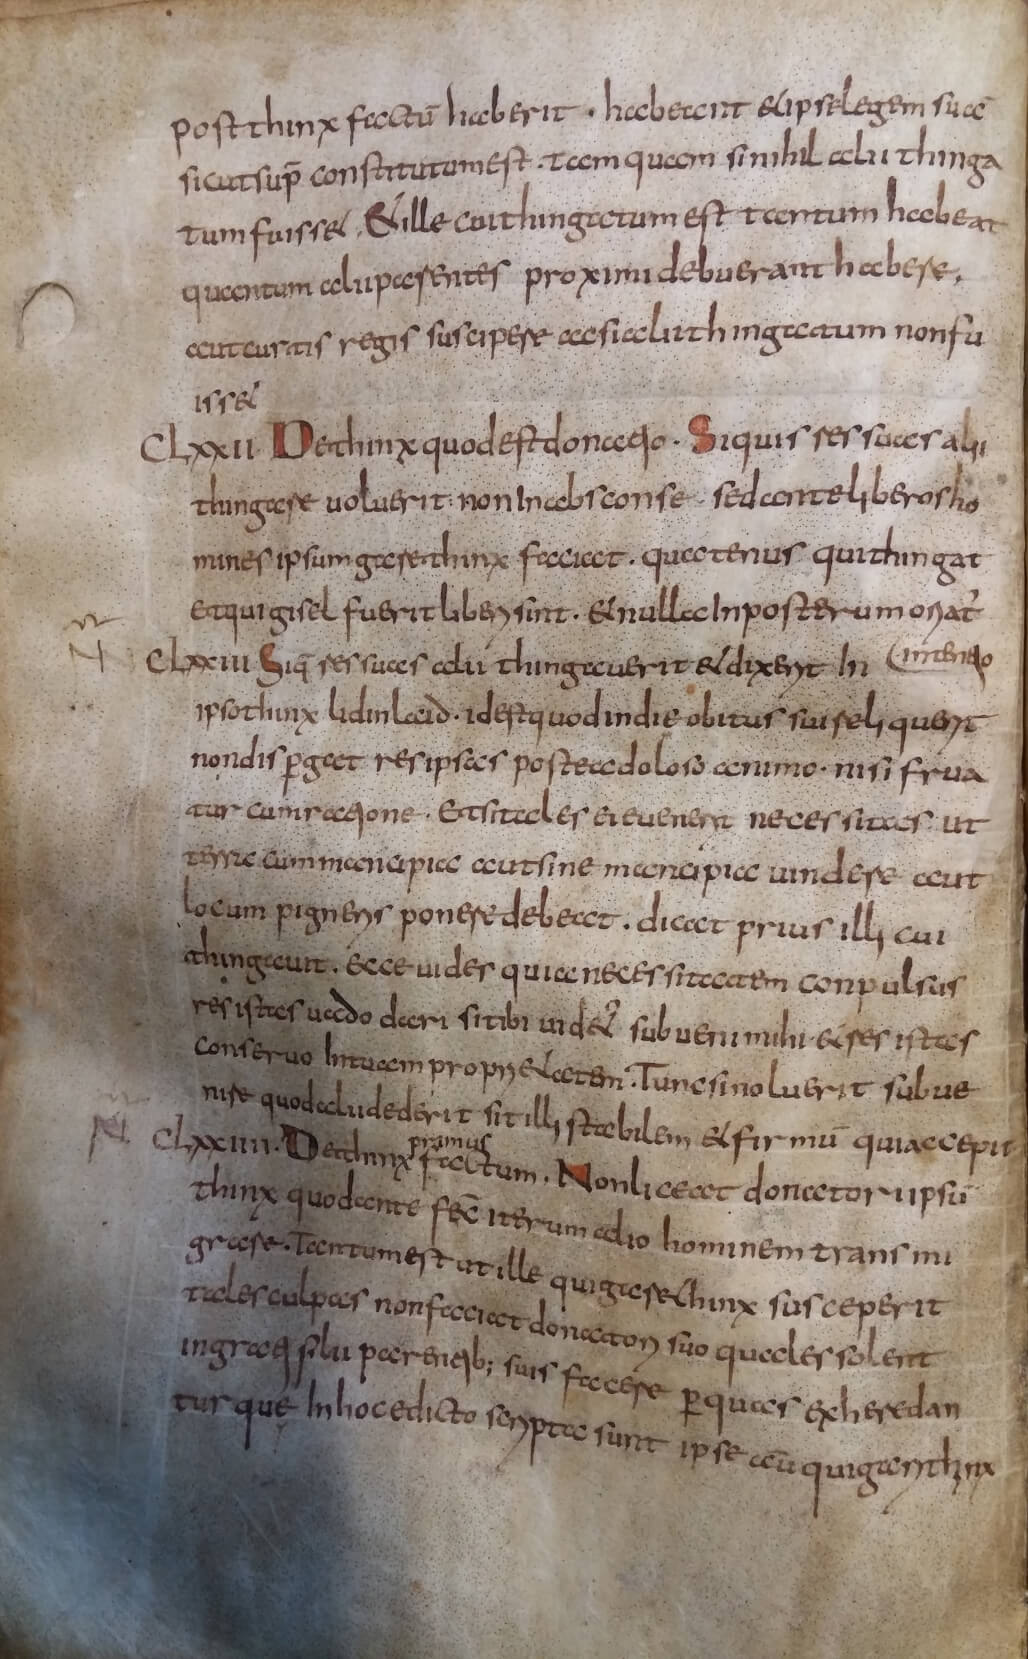 post thinx factū haberit · habeant et ipse legem suā
sicut sup̄ constitutum est · tam quam si nihil alii thinga
tum fuisset · Et ille cui thingatum est tantum habeat
quantum alii parentes proximi debuerant habere,
aut curtis regis suscipere ac si alii thingatum non fu
isset
CLXXII De thinx quod est donatio · Si quis res suas alii
thingare voluerit · non in absconse · sed ante liberos ho
mines ipsum garethinx faciat · quatenus qui thingat
et qui gisel fuerit liberi sint · et nulla in posterum oriat᷑
(intentio
CLXXIII Si q̄ res suas alii thingaverit et dixerit in
ipso thinx lidinlaid · id est quod in die obitus sui reliquerit
non dispergat res ipsas postea doloso animo · nisi frua
tur cum ratione · Et si tales ei evenerit necessitas ut
terra cum mancipia aut sine mancipia vindere aut
locum pigneris ponere debeat · dicat prius illi cui
thingavit · ecce vides quia necessitatem conpulsus
res istas vado dari si tibi videt᷑ subveni mihi et res istas
conservo in tuam proprietatem · Tunc si noluerit subve
nire quod alii dederit sit illi stabilem et firmū qui accepit
CLXXIIII · De thinx primus factum · Non liceat donatori ipsū
thinx quod ante fec̄ iterum alio hominem transmi
grare · Tantum est ut ille qui garethinx susceperit
tales culpas non faciat donatori suo quales solent
ingrati filii parentib; suis facere p̱ quas exheredan
tur que in hoc edicto scripta sunt ipse aū qui garithinx